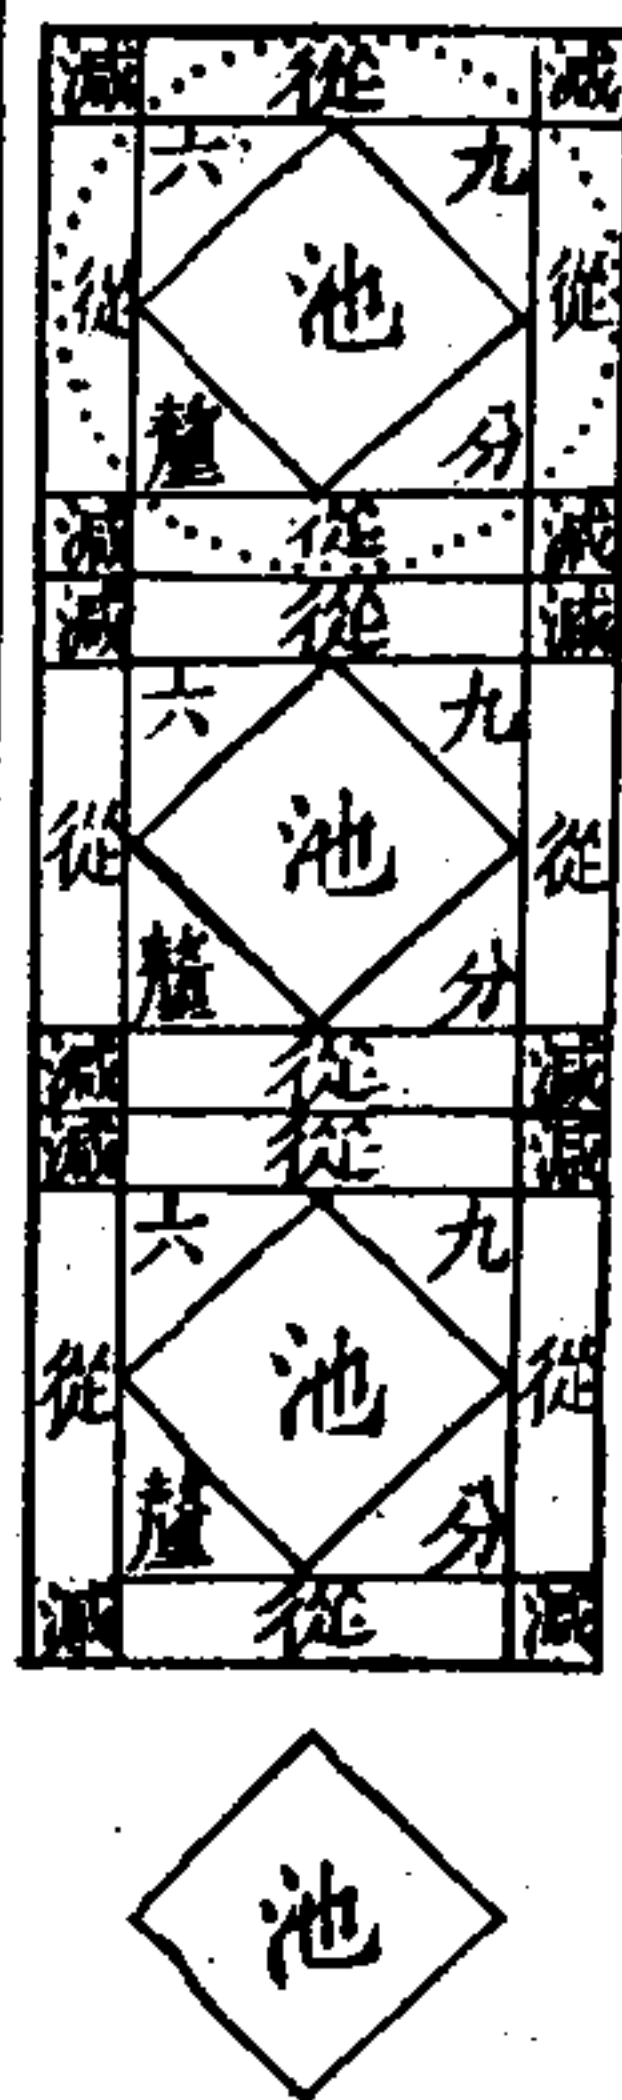 減 從 減
六 九
從 池 從
釐 分
減 從 減
減 從 減
六 九
從 池 從
釐 分
減 從 減
減 從 減
六 九
從 池 從
釐 分
減 從 減
池